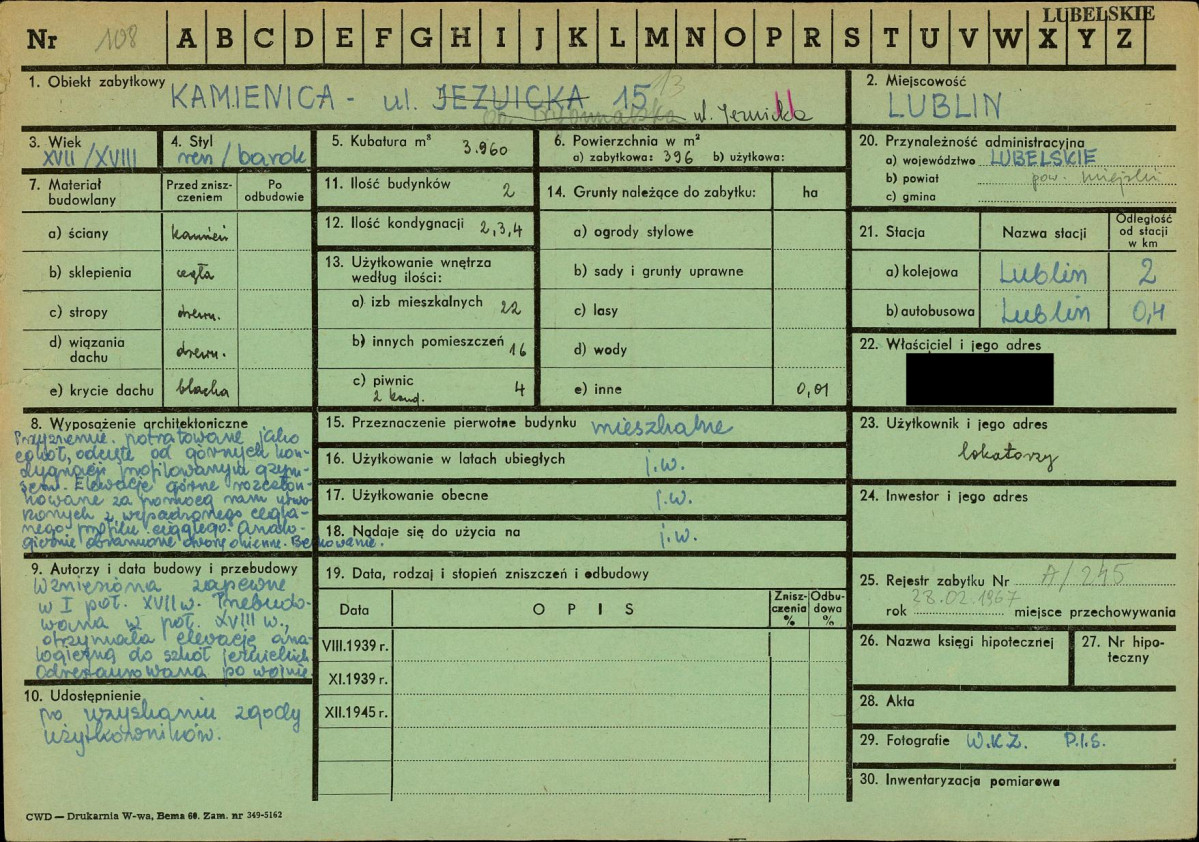 LUBELSKIE
Nr 108 A B C D E F G H I J K L M N O P R S T U V W X Y Z
1. Obiekt zabytkowy
KAMIENICA - ul. JEZUICKA 15 13
ul. Jezuicka
2. Miejscowość
LUBLIN
3. Wiek
XVII/XVIII
4. Styl
ren/barok
5. Kubatura m³ 3.960
6. Powierzchnia w m²
a) zabytkowa: 396 b) użytkowa:
20. Przynależność administracyjna
a) województwo LUBELSKIE
b) powiat pow. miejski
c) gmina
7. Materiał budowlany
Przed znisz-
czeniem
Po
odbudowie
a) ściany kamień
b) sklepienia cegła
c) stropy drewn.
d) wiązania
dachu drewn.
e) krycie dachu blacha
11. Ilość budynków 2
12. Ilość kondygnacji 2,3,4
13. Użytkowanie wnętrza
według ilości:
a) izb mieszkalnych 22
b) innych pomieszczeń 16
c) piwnic 4
2 kond.
14. Grunty należące do zabytku: ha
a) ogrody stylowe
b) sady i grunty uprawne
c) lasy
d) wody
e) inne 0,01
21. Stacja Nazwa stacji
Odległość
od stacji
w km
a) kolejowa Lublin 2
b) autobusowa Lublin 0,4
22. Właściciel i jego adres
8. Wyposażenie architektoniczne
Przyziemie potraktowane jako
cokół, odcięte od górnych kon-
dygnacji profilowanym gzym-
sem. Elewacje górne rozczłon-
kowane za pomocą ram utwo-
rzonych z wypadzonego cegla-
nego profilu ciągłego. Analo-
gicznie obramione otwory okienne. Beczkowanie.
15. Przeznaczenie pierwotne budynku mieszkalne
16. Użytkowanie w latach ubiegłych j.w.
17. Użytkowanie obecne j.w.
18. Nadaje się do użycia na j.w.
23. Użytkownik i jego adres
lokatorzy
24. Inwestor i jego adres
9. Autorzy i data budowy i przebudowy
Wzniesiona zapewne
w I poł. XVII w. Przebudo-
wana w poł. XVIII w.,
otrzymała elewację ana-
logiczną do szkół jezuickich.
Odrestaurowana po wojnie.
10. Udostępnienie
po uzyskaniu zgody
użytkowników.
19. Data, rodzaj i stopień zniszczeń i odbudowy
Data OPIS
Znisz-
czenia
%
Odbu-
dowa
%
VIII.1939 r.
XI.1939 r.
XII.1945 r.
25. Rejestr zabytku Nr A/245
28.02.1967
rok miejsce przechowywania
26. Nazwa księgi hipotecznej
27. Nr hipo-
teczny
28. Akta
29. Fotografie W.K.Z. P.I.S.
30. Inwentaryzacja pomiarowa
CWD — Drukarnia W-wa, Bema 60. Zam. nr 349-5162